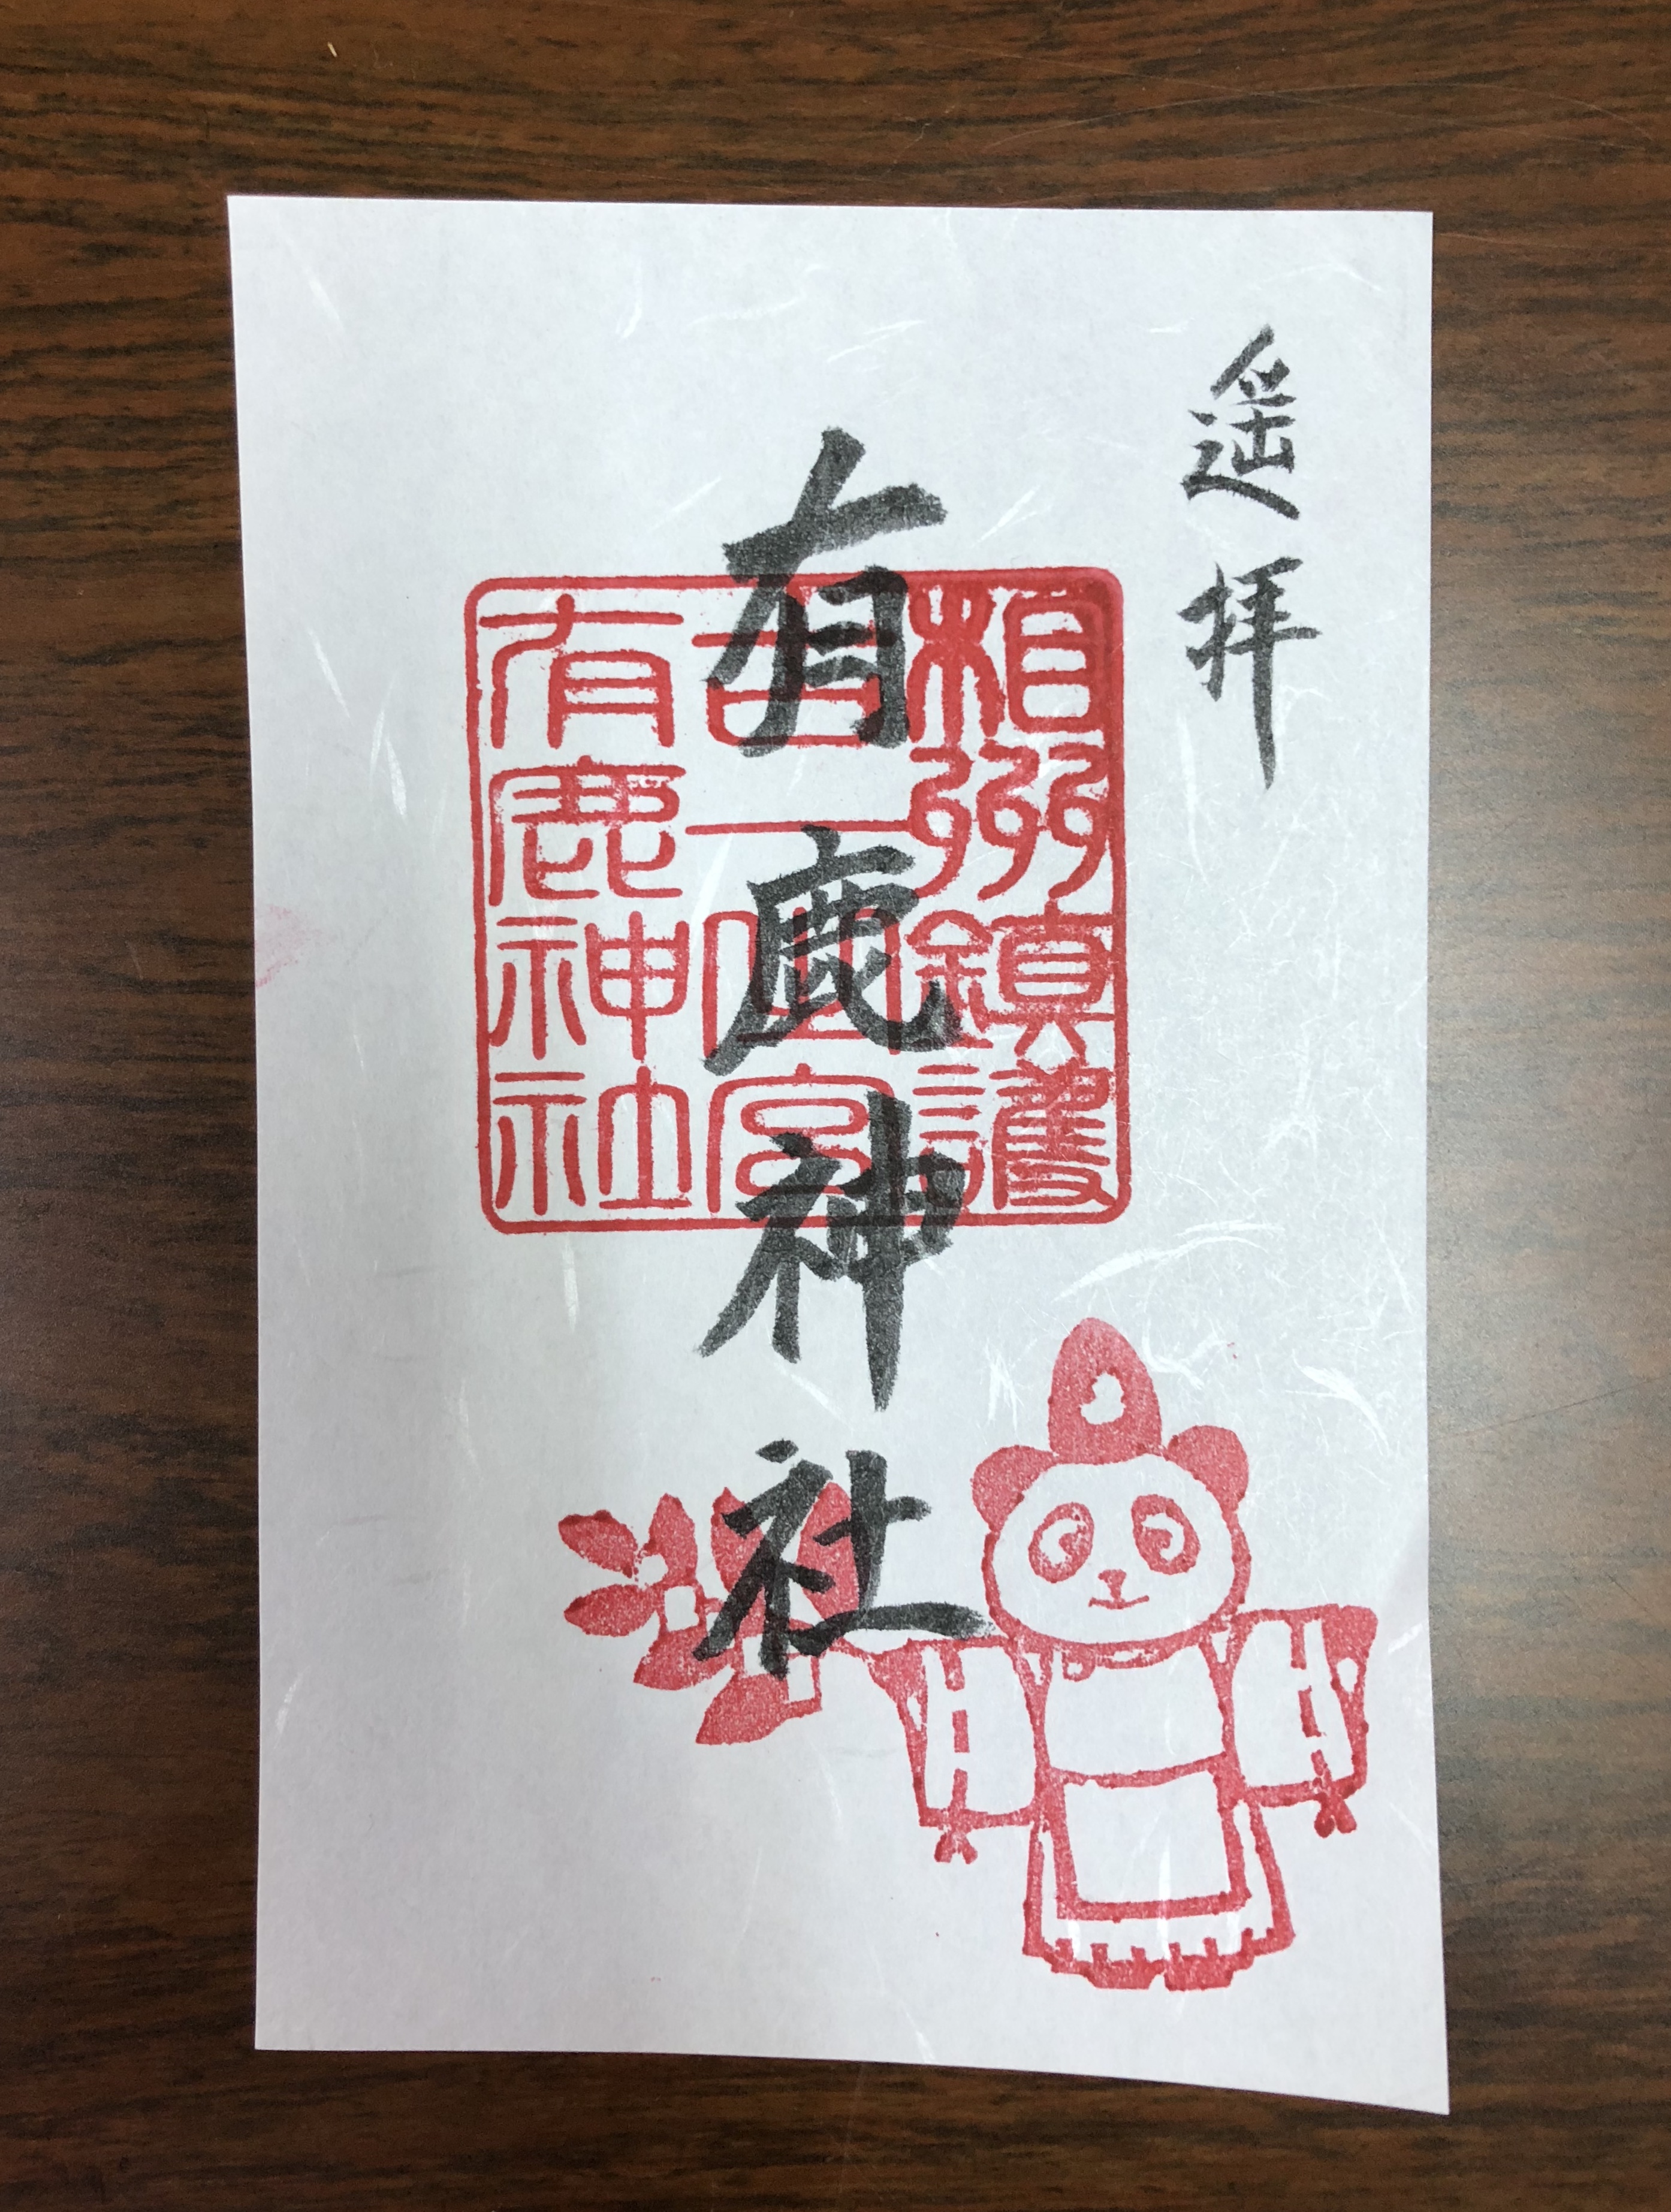 遥拝
有鹿神社
相州鎮護
一宮
有鹿神社